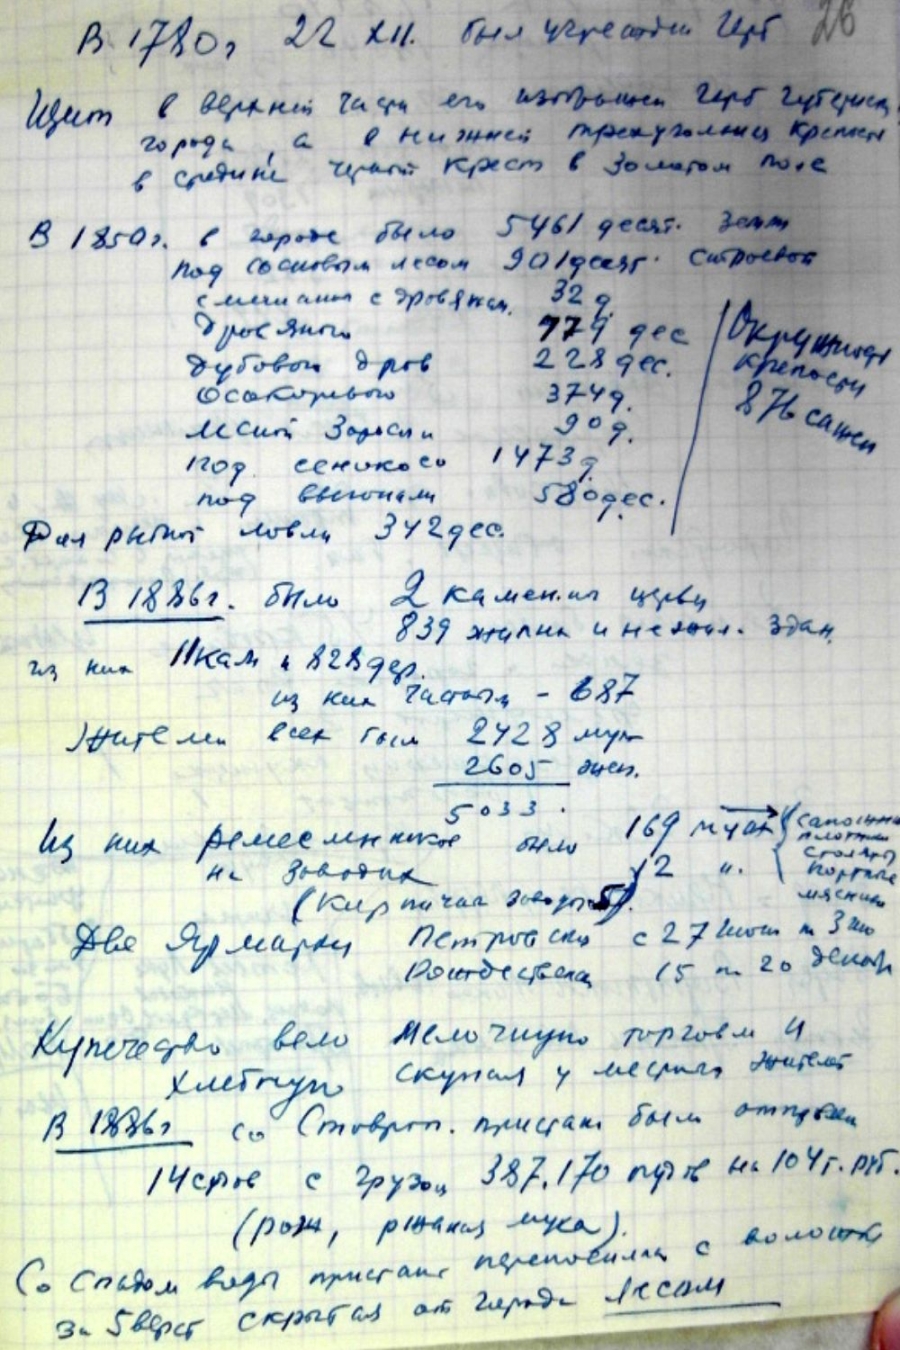 26
В 1780 г 22 XII. был учрежден герб
Щит в верхней части его изображен герб губернск.
города, а в нижней треугольник крепости
в средине черный крест в золотом поле
В 1850 г. в городе было 5461 десят. земли
под сосновым лесом 901 десят. строевой
смешаный с дровяным 32 д.
дровяного 779 дес
дубовой дров 228 дес.
Осокоревого 374 д.
лесной заросли 90 д.
под сенокосо 1473 д
под выгонами 580 дес.
Окружность
крепости
876 сажен
Для рыбной ловли 342 дес.
В 1886 г. было 2 камен.
839 жилых и нежил. здан.
из них 11 кам и 828 дер.
из них частных - 687
Жителей всех было 2428 муж
2605 жен.
5033.
Из них ремесленников было 169
на заводах 12 ч.
(Кирпичных заводов 5).
сапожники
плотники
столяры
портные
мясники
Две ярмарки Петровская с 27 июня п 3 ию
Рождественск 15 п. 20 декабр
Купечество вело мелочную торговлю и
хлебную скупая у местных жителей
В 1886 г со Ставроп. пристани было отправлен
14 судов с грузом 387.170 пудов на 104 т. руб.
(рожь, ржаная мука).
Со спадом воды пристань переносилась с
за 5 верст скрытая от города лесом